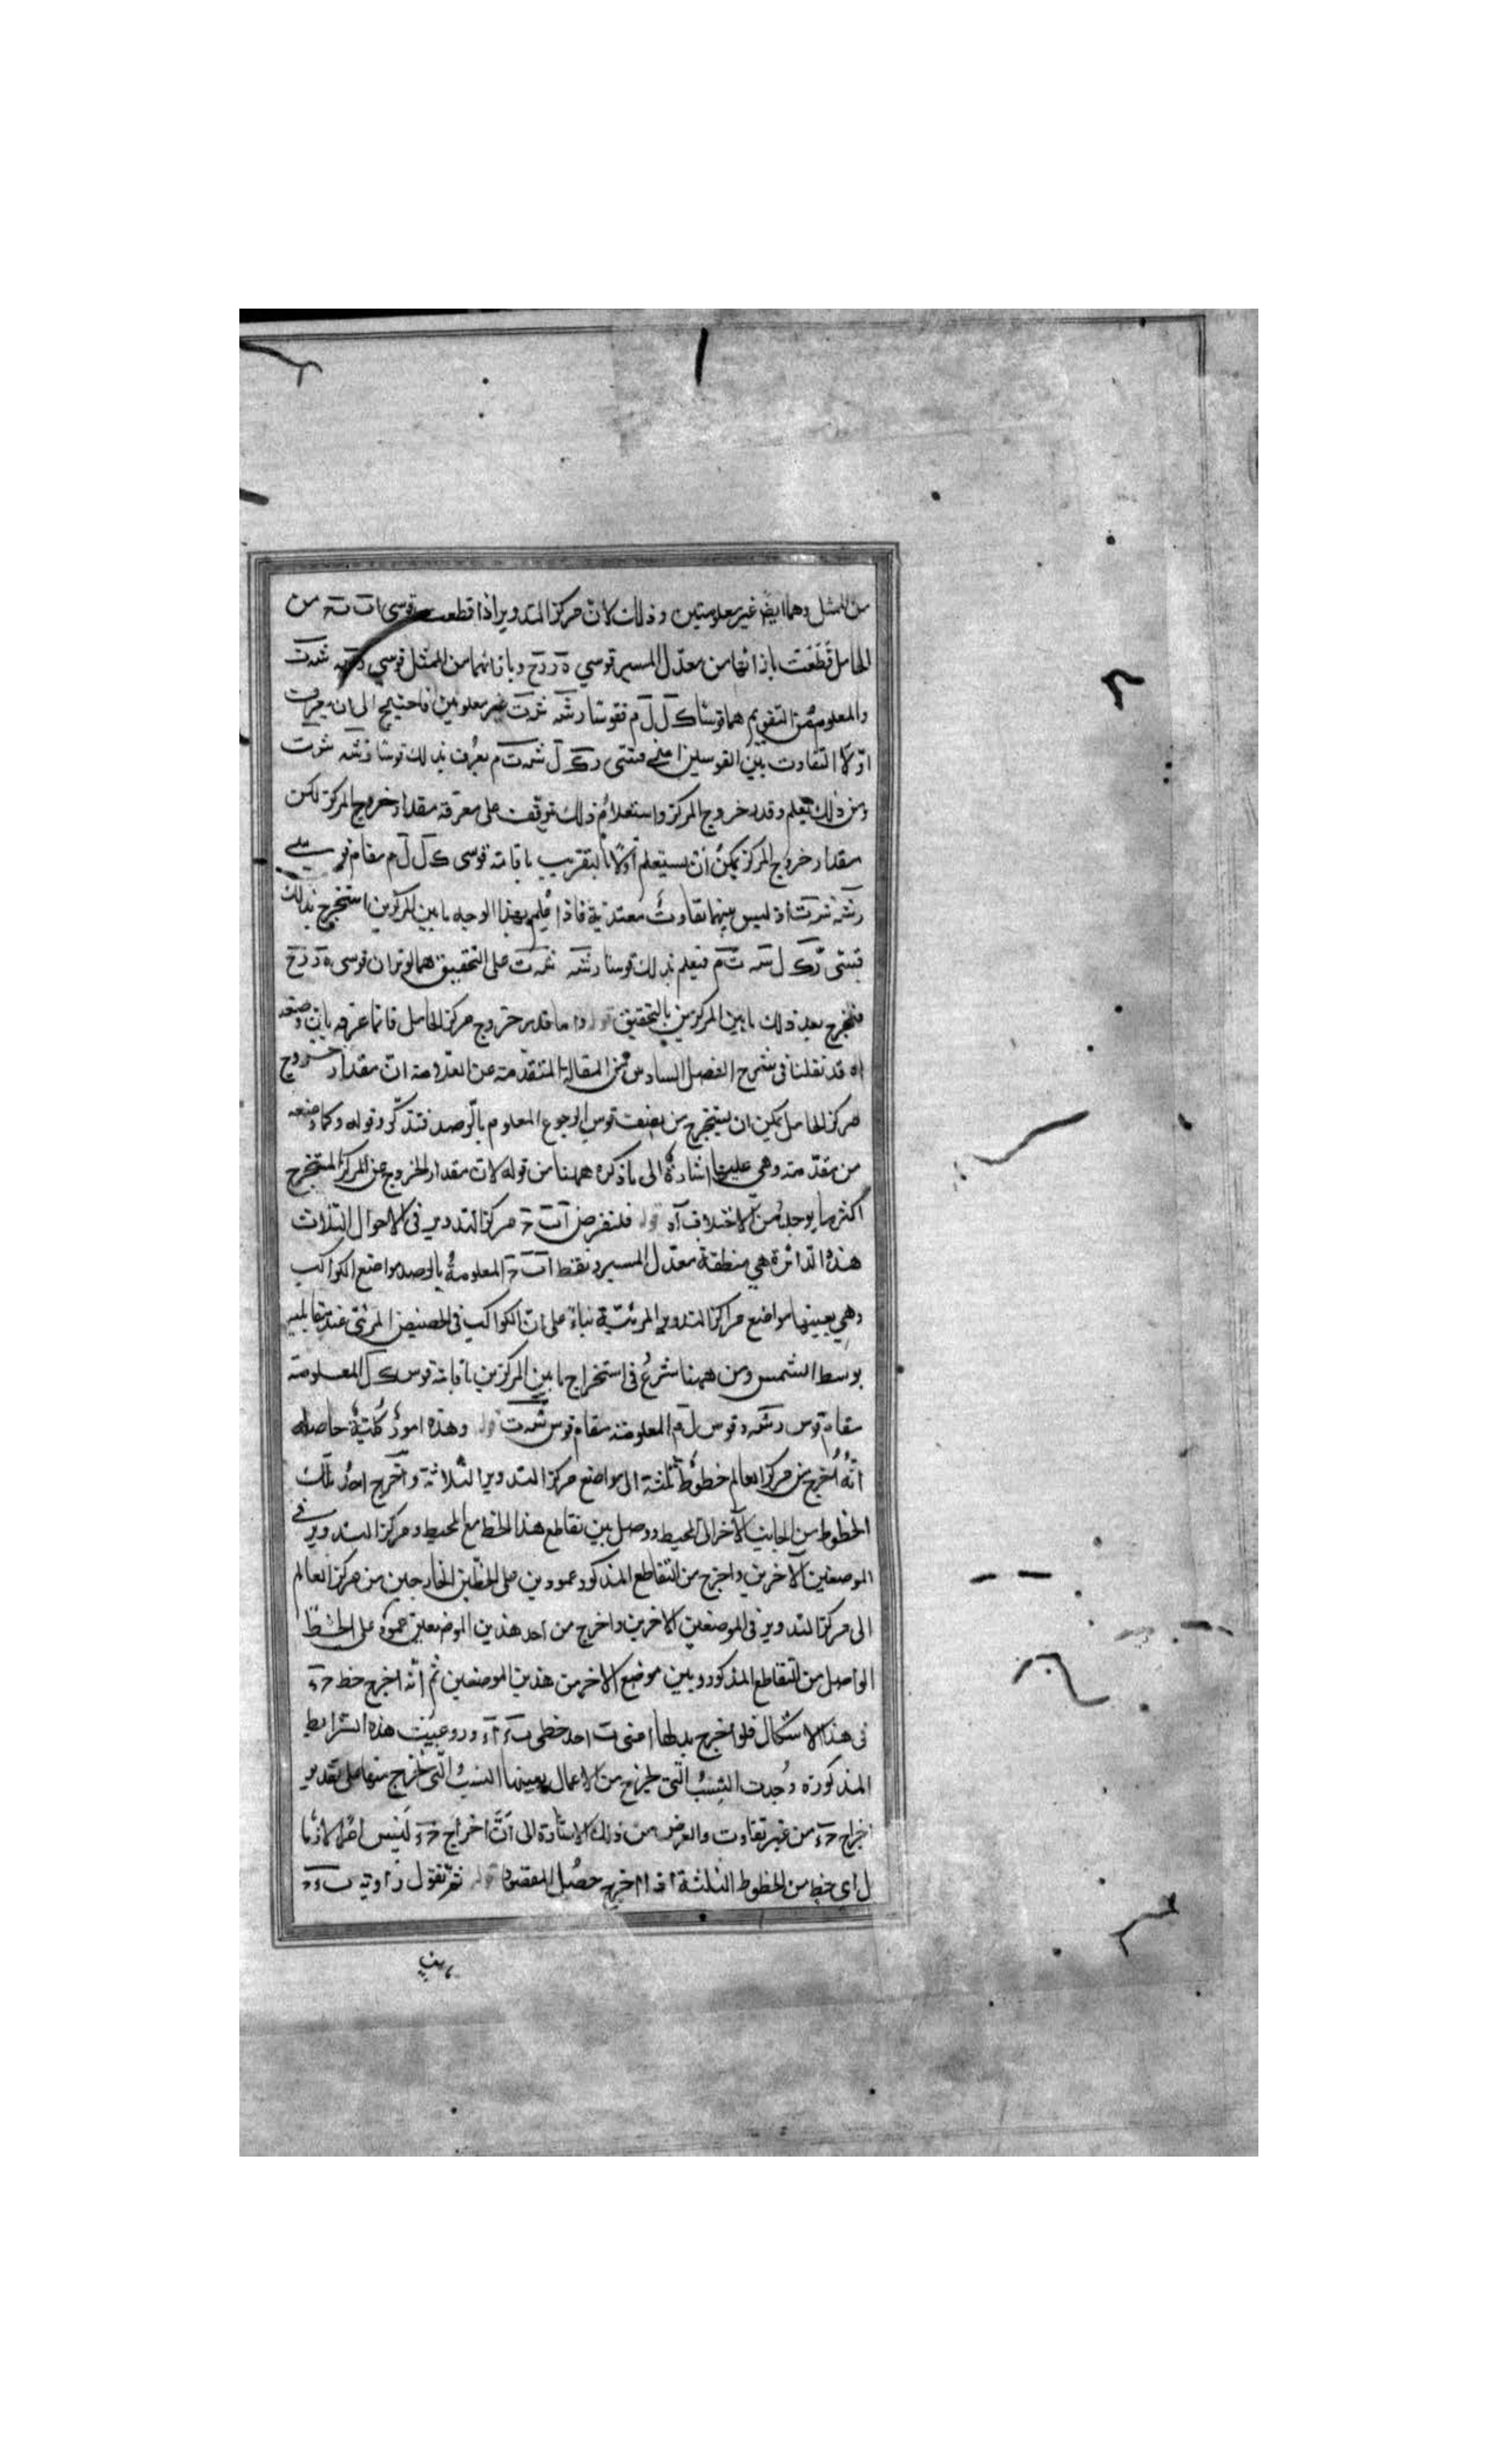 من الممثل وهما ايضا غير معلومتين وذلك لان مركز التدوير اذا قطعت قوسى اب به من
الحامل قطعت بازائها من معدل المسير قوسي ه ز ز ح وبازائهما من الممثل قوسي
والمعلوم من التقويم هما قوسا ك ل ل م فقوسا رشه شرت غير معلومين فاحتيج الى ان يعرف
اولا التفاوت بين القوسين اعني يعرف بذلك قوسا
ومن ذلك يعلم وقدر خروج المركز واستعلام ذلك توقف على معرفة مقدار خروج المركز لكن
مقدار خروج المركز يمكن ان يستعلم اولا بالتقريب باقامة قوسى ك ل ل م مقام قوسي
اذ ليس بينهما تفاوت معتد به فاذا علم بهذا الوجه ما بين المركزين استخرج بذلك
فيعلم بذلك قوسا على التحقيق هما لوتران قوسى ه ز ز ح
فيخرج بعد ذلك ما بين المركزين بالتحقيق قوله واما قدر خروج مركز الحامل فانما عرفه بان وصفه
اه قد نقلنا في شرح الفصل السادس من المقالة المتقدمة عن العلامة ان مقدار خروج
مركز الحامل يمكن ان يستخرج من نصف قوس الرجوع المعلوم بالرصد فتذكر وقوله وكما وصفه
من مقدمته وهي اشارة الى ما ذكره ههنا من قوله لان مقدار الخروج عن المركز المستخرج
اكثر ما يوجد من الاختلاف آه قوله فلنفرض ا ب ح مركز التدوير في الاحوال الثلاث
هذه الدائرة هي منطقة معدل المسير ونقط ا ب ح المعلومة بالرصد مواضع الكواكب
وهي بعينها مواضع مراكز التدوير المرئية بناء على ان الكواكب في الحضيض المرئي عند مقابلته
بوسط الشمس ومن ههنا شرع في استخراج ما بين المركزين باقامة قوس ك ل المعلومة
مقام قوس رشه وقوس ل م المعلومة مقام قوس شرت قوله وهذه امور كلية حاصله
انه اخرج من مركز العالم خطوط ثلثة الى مواضع مركز التدوير الثلاثة واخرج احد تلك
الخطوط من الجانب الآخر الى المحيط ووصل بين تقاطع هذا الخط مع المحيط ومركز التدوير في
الموضعين الآخرين واخرج من التقاطع المذكور عمودين على الخطين الخارجين من مركز العالم
الى مركز التدوير في الموضعين الاخرين واخرج من احد هذين الموضعين عمود على الخط
الواصل من التقاطع المذكور وبين موضع الاخر من هذين الموضعين ثم انه اخرج خط ح ء
في هذا الاشكال فلو اخرج بدلها احد خطى ب ء ا ء وروعيت هذه الشرايط
المذكورة وجدت النسب التي يخرج من الاعمال بعينها النسب التي تخرج منها على تقدير
اخراج ح ء من غير تفاوت والغرض من ذلك الاشارة الى ان اخراج ح ء ليس امرا لازما
ل اى خط من الخطوط الثلثة اذا اخرج حصل المقصود قوله ثم نقول زاوية ب ء ح